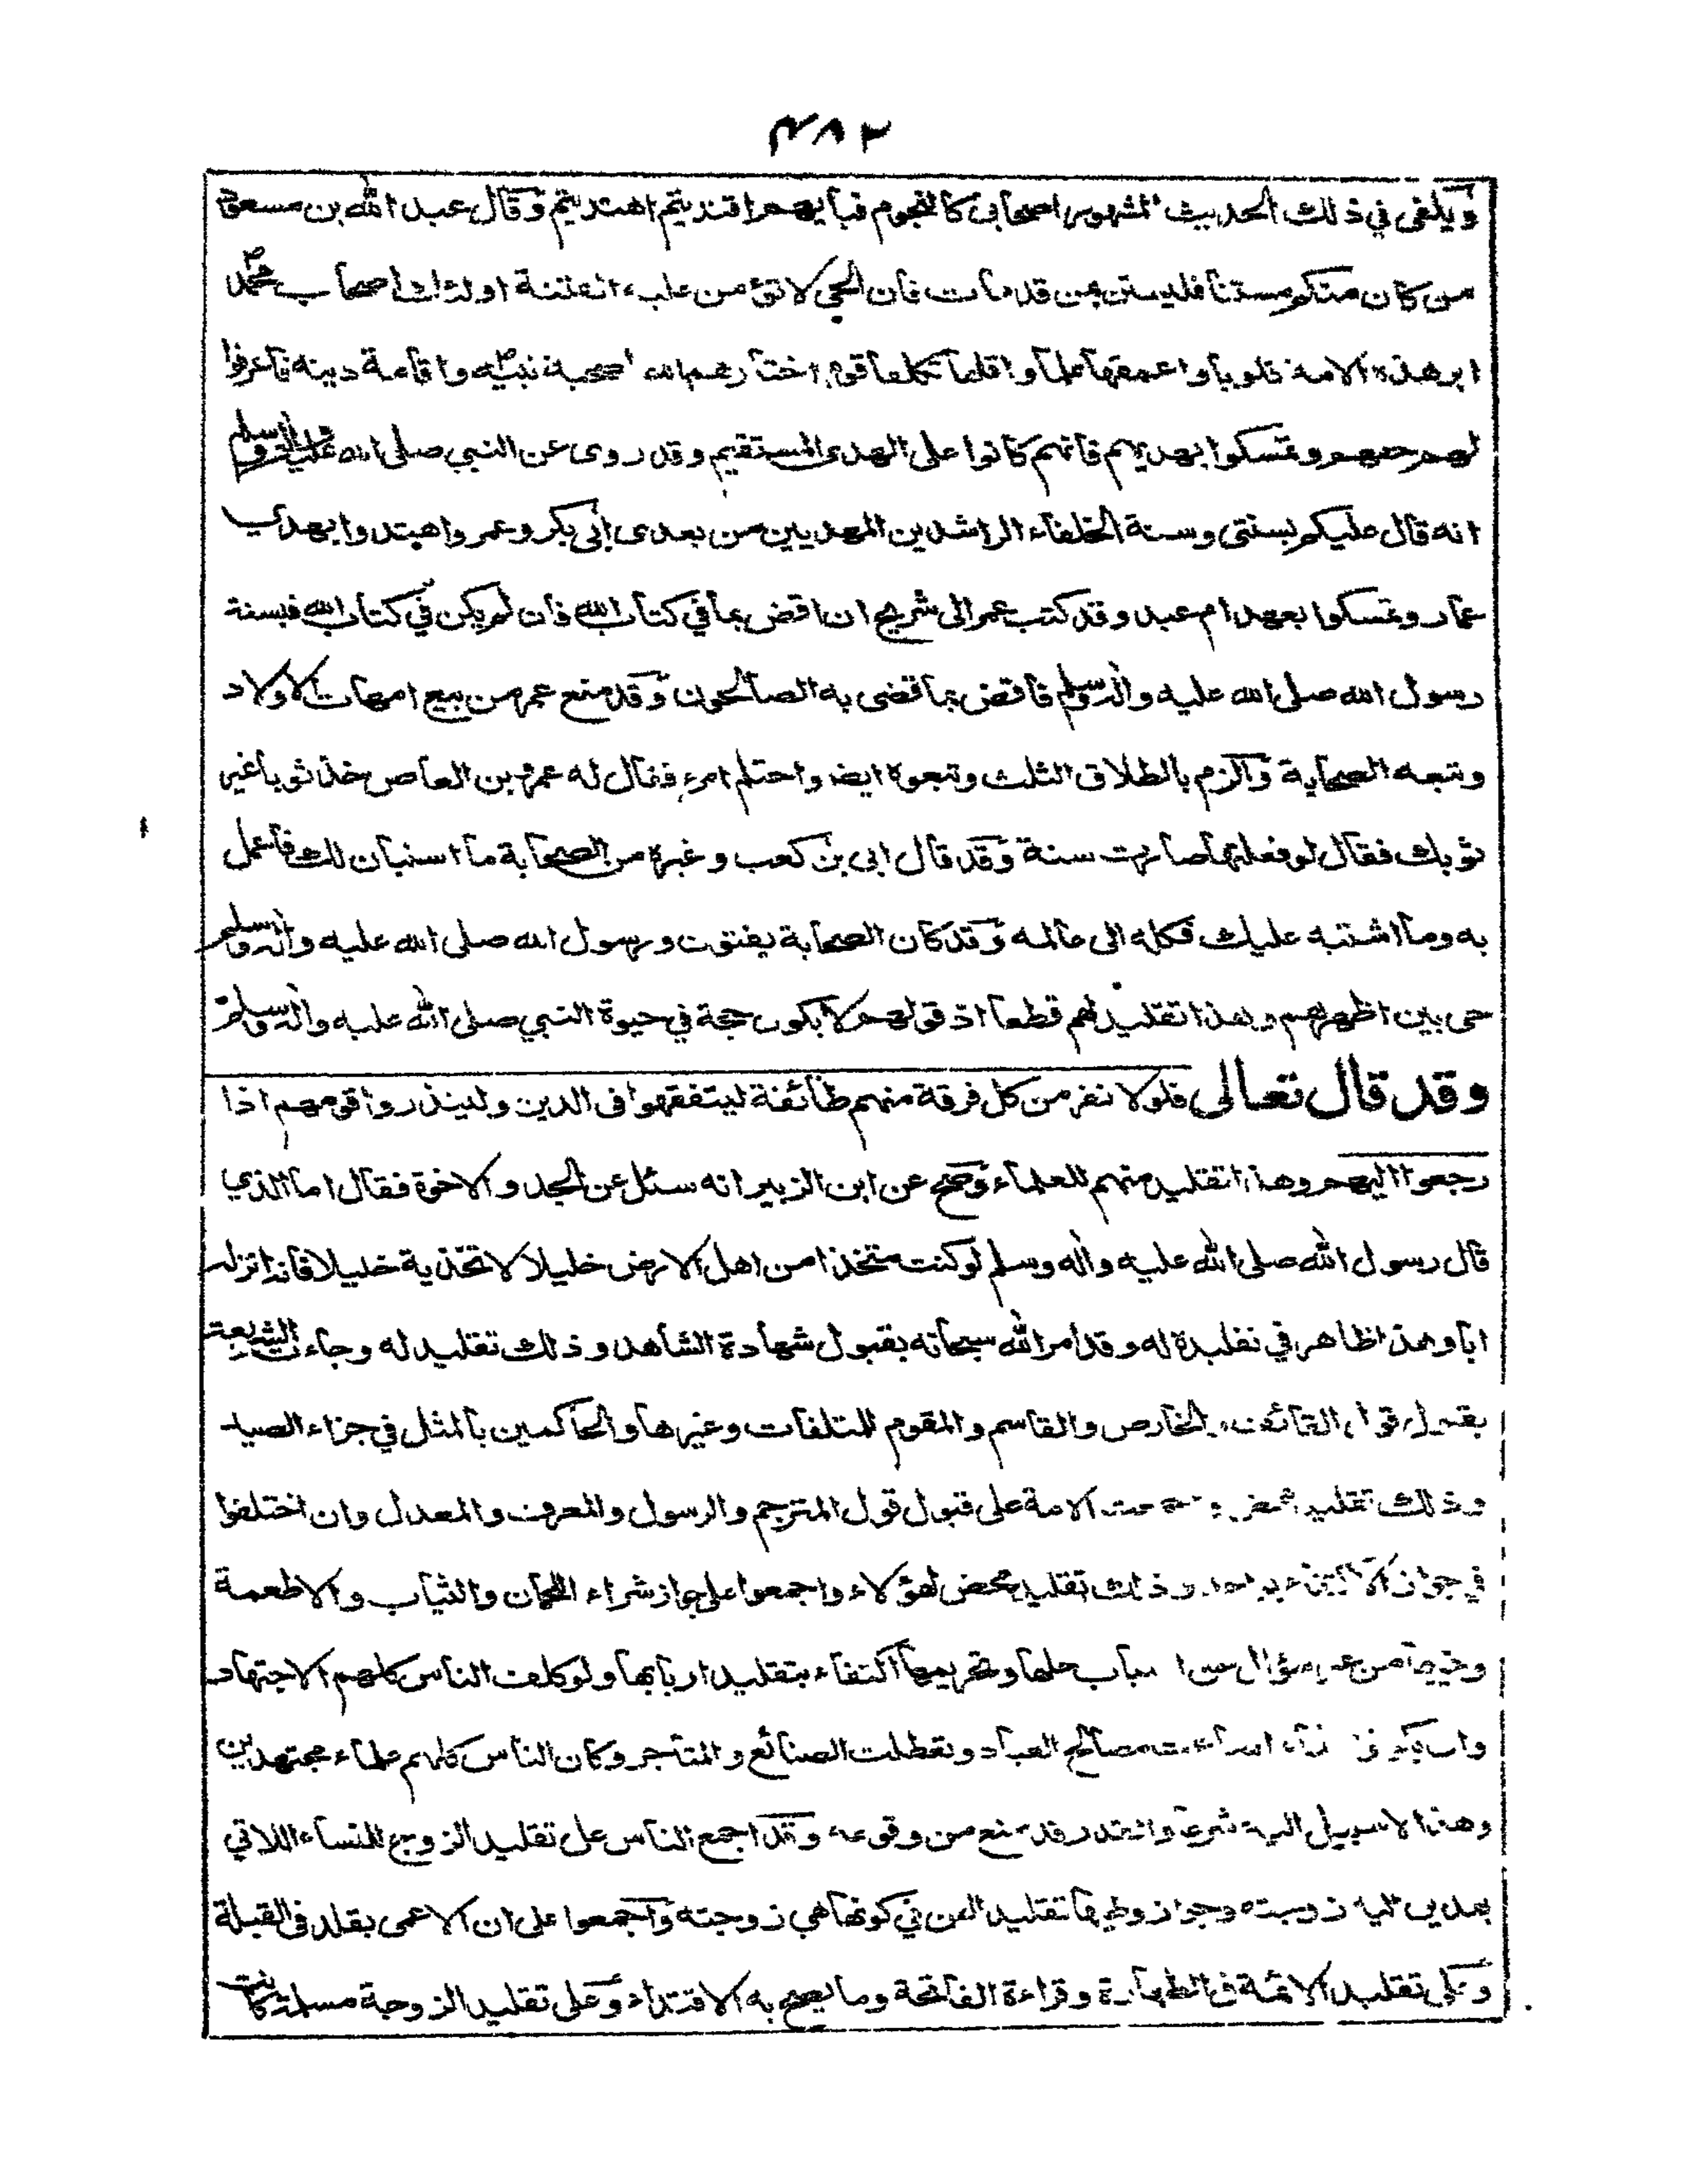 ٤٨٢
ويكفي في ذلك الحديث المشهور اصحابي كالنجوم فبأيهم اقتديتم اهتديتم وقال عبد الله بن مسعود
من كان منكم مستنا فليستن بمن قد مات فان الحي لا تؤمن عليه الفتنة اولئك اصحاب محمد
ابر هذه الامة قلوبا واعمقها علما واقلها تكلفا قوم اختارهم الله لصحبة نبيه واقامة دينه فاعرفوا
لهم حقهم وتمسكوا بهديهم فانهم كانوا على الهدى المستقيم وقد روى عن النبي صلى الله عليه وآله وسلم
انه قال عليكم بسنتى وسنة الخلفاء الراشدين المهديين من بعدى ابي بكر وعمر واهتدوا بهدي
عمار وتمسكوا بعهد ام عبد وقد كتب عمر الى شريح ان اقض بما في كتاب الله فان لم يكن في كتاب الله فبسنة
رسول الله صلى الله عليه وآله وسلم فاقض بما قضى به الصالحون وقد منع عمر من بيع امهات الاولاد
وتبعه الصحابة والزم بالطلاق الثلث وتبعوه ايضا واحتلم مرة فقال له عمرو بن العاص خذ ثوبا غير
ثوبك فقال لو فعلتها صارت سنة وقد قال ابى بن كعب وغيره من الصحابة ما استبان لك فاعمل
به وما اشتبه عليك فكله الى عالمه وقد كان الصحابة يفتون ورسول الله صلى الله عليه وآله وسلم
حى بين اظهرهم وهذا تقليد لهم قطعا اذ قولهم لا يكون حجة في حيوة النبي صلى الله عليه وآله وسلم
وقد قال تعالى فلولا نفر من كل فرقة منهم طائفة ليتفقهوا فى الدين ولينذروا قومهم اذا
رجعوا اليهم وهذا تقليد منهم للعلماء وصح عن ابن الزبير انه سئل عن الجد والاخوة فقال اما الذي
قال رسول الله صلى الله عليه وآله وسلم لو كنت متخذا من اهل الارض خليلا لاتخذته خليلا فانه انزله
ابا وهذا ظاهر في تقليده له وقد امر الله سبحانه بقبول شهادة الشاهد وذلك تقليد له وجاءت الشريعة
بقبول قول القائف والخارص والقاسم والمقوم للمتلفات وغيرها والحاكمين بالمثل في جزاء الصيد
وذلك تقليد محض الامة على قبول قول المترجم والرسول والمعرف والمعدل وان اختلفوا
في جواز الاكتفاء بواحد وذلك تقليد محض لهؤلاء واجمعوا على جواز شراء اللحمان والثياب والاطعمة
وغيرها من غير سؤال عن اسباب حلها وتحريمها اكتفاء بتقليد اربابها ولو كلف الناس كلهم الاجتهاد
وان يكونوا مصالح العباد وتعطلت الصنائع والمتاجر وكان الناس كلهم علماء مجتهدين
وهذا لا سبيل اليه شرعا والقدر قد منع من وقوعه وقد اجمع الناس على تقليد الزوج للنساء اللاتي
يهدين اليه زوجته وجواز وطيها تقليد الهن في كونها هي زوجته واجمعوا على ان الاعمى يقلد فى القبلة
وعلى تقليد الائمة فى الطهارة وقراءة الفاتحة وما يصح به الاقتداء وعلى تقليد الزوجة مسلمة كانت